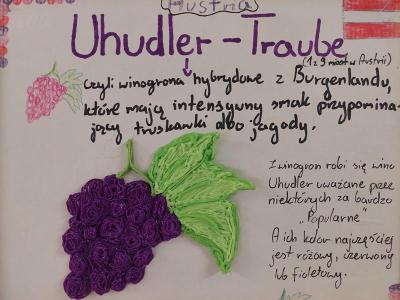 Austria
Uhudler - Traube
(1 z 9 miast w Austrii)
czyli winogrona hybrydowe z Burgenlandu,
które mają intensywny smak przypomina-
jący truskawki albo jagody.
z winogron robi się wino
Uhudler uważane przez
niektórych za bardzo
„Popularne"
A ich kolor najczęściej
jest różowy, czerwony
lub fioletowy.